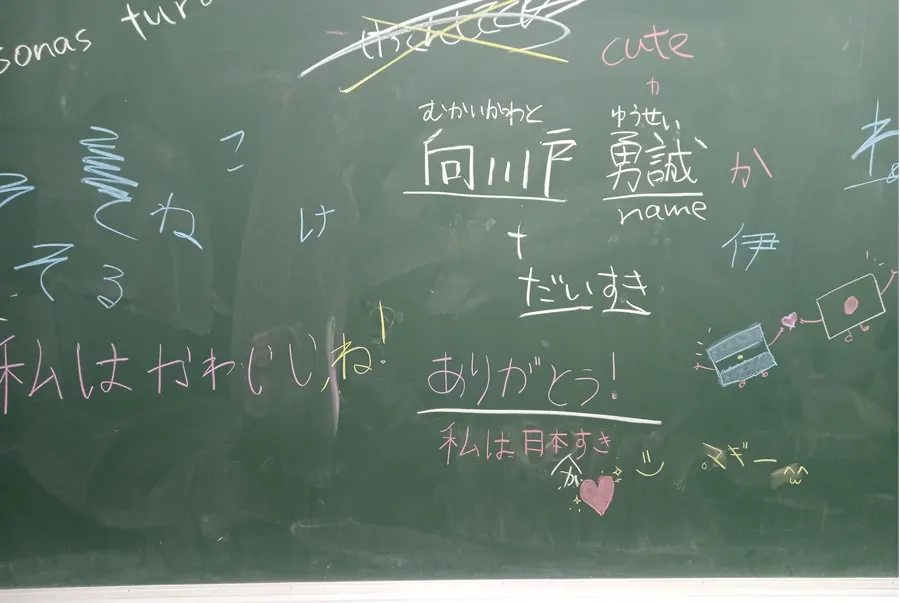 sonas
cute
か
むかいがわと ゆうせい
向川戸 勇誠 か
name
こ
てね け
伊
てる
だいすき
私はかわいい,ね!
ありがとう!
私は日本すき
が
マギー